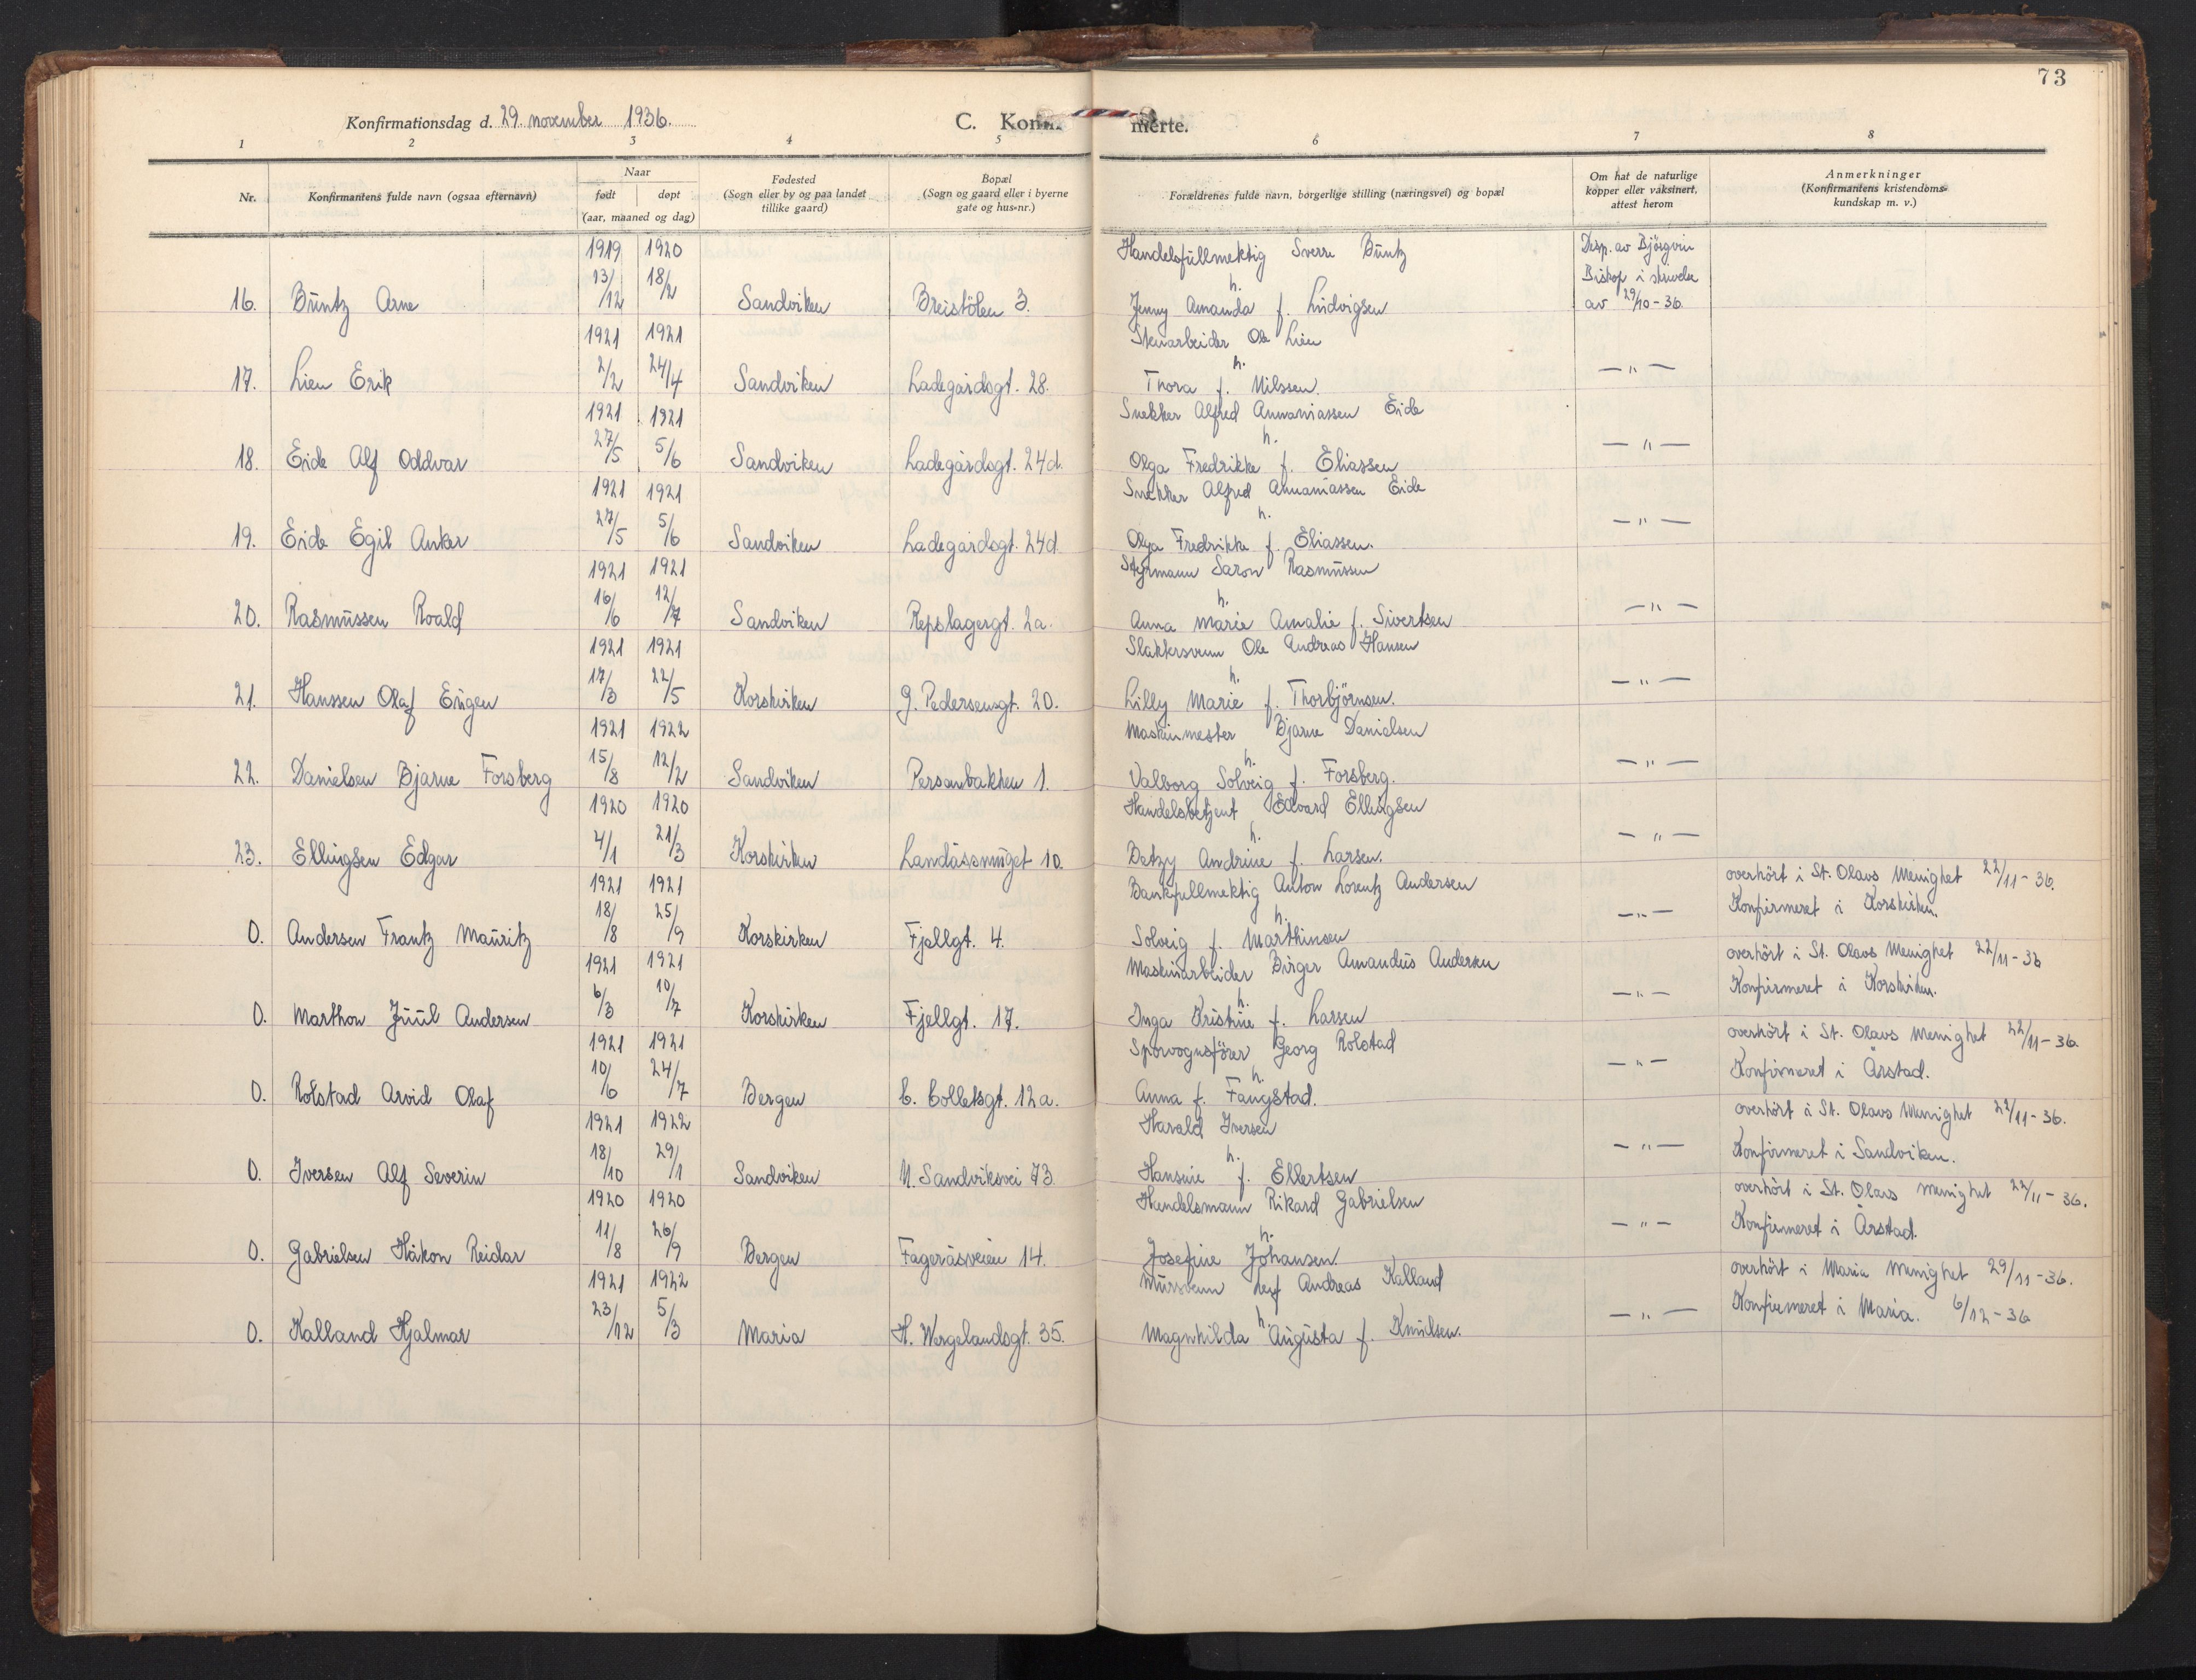 73
Konfirmationsdag d. 29. november 1936.
C. Konfi
merte.
1 2 3 4 5 6 7 8
Nr.
Konfirmantens fulde navn (ogsaa efternavn)
Naar
født døpt
(aar, maaned og dag)
Fødested
(Sogn eller by og paa landet
tillike gaard)
Bopæl
(Sogn og gaard eller i byerne
gate og hus-nr.)
Forældrenes fulde navn, borgerlige stilling (næringsvei) og bopæl
Om hat de naturlige
kopper eller vaksinert,
attest herom
Anmerkninger
(Konfirmantens kristendoms-
kundskap m. v.)
1919 1920 Handelsfullmektig Sverre Buntz Disp. av Björgvin
13/12 18/2 h. Biskop i skrivelse
16. Buntz Arne Sandviken Breistölen 3. Jenny Amanda f. Ludvigsen av 29/10-36.
1921 1921 Stenarbeider Ole Lien
2/2 24/4 h. — " —
17. Lien Erik Sandviken Ladegårdsgt. 28. Thora f. Nilssen.
1921 1921 Snekker Alfred Annaniassen Eide
27/5 5/6 h. — " —
18. Eide Alf Oddvar Sandviken Ladegårdsgt. 24d. Olga Fredrikke f. Eliassen
1921 1921 Snekker Alfred Annaniassen Eide
27/5 5/6 h. — " —
19. Eide Egil Anker Sandviken Ladegårdsgt. 24d Olga Fredrikke f. Eliassen.
1921 1921 Styrmann Saron Rasmussen
16/6 12/7 h. — " —
20. Rasmussen Roald Sandviken Repslagergt. 2a. Anna Marie Amalie f. Sivertsen
1921 1921 Slaktersvenn Ole Andreas Hansen
17/3 22/5 h. — " —
21. Hanssen Olaf Eugen Korskirken G. Pedersensgt. 20. Lilly Marie f. Thorbjörnsen.
1921 1922 Maskinmester Bjarne Danielsen
15/8 12/2 h. — " —
22. Danielsen Bjarne Forsberg Sandviken Persenbakken 1. Valborg Solveig f. Forsberg.
1920 1920 Handelsbetjent Edvard Ellingsen
4/1 21/3 h. — " —
23. Ellingsen Edgar Korskirken Landåssmuget 10. Betzy Andrine f. Larsen.
1921 1921 Bankfullmektig Anton Lorentz Andersen overhört i St. Olavs Menighet 22/11-36.
18/8 25/9 h. — " — Konfirmeret i Korskirken.
0. Andersen Frantz Mauritz Korskirken Fjellgt. 4. Solveig f. Marthinsen
1921 1921 Maskinarbeider Birger Amandus Andersen overhört i St. Olavs Menighet 22/11-36
6/3 10/7 h. — " — Konfirmeret i Korskirken.
0. Marthon Juul Andersen Korskirken Fjellgt. 17. Inga Kristine f. Larsen
1921 1921 Sporvognsförer Georg Rolstad overhört i St. Olavs Menighet 22/11-36.
10/6 24/7 h. — " — Konfirmeret i Årstad.
0. Rolstad Arvid Olaf Bergen C. Colletsgt. 12a. Anna f. Fangstad.
1921 1922 Harald Iversen overhört i St. Olavs Menighet 22/11-36.
18/10 29/1 h. — " — Konfirmeret i Sandviken.
0. Iversen Alf Severin Sandviken N. Sandviksvei 73 Hansine f. Ellertsen
1920 1920 Handelsmann Rikard Gabrielsen overhört i St. Olavs Menighet 22/11-36.
11/8 26/9 h. — " — Konfirmeret i Årstad.
0. Gabrielsen Håkon Reidar Bergen Fageråsveien 14. Josefine Johansen
1921 1922 Mursvenn Andreas Kalland overhört i Maria Menighet 29/11-36.
23/12 5/3 h. — " — Konfirmeret i Maria. 6/12-36
0. Kalland Hjalmar Maria H. Wergelandsgt. 35. Magnhilda Augusta f. Knudsen.